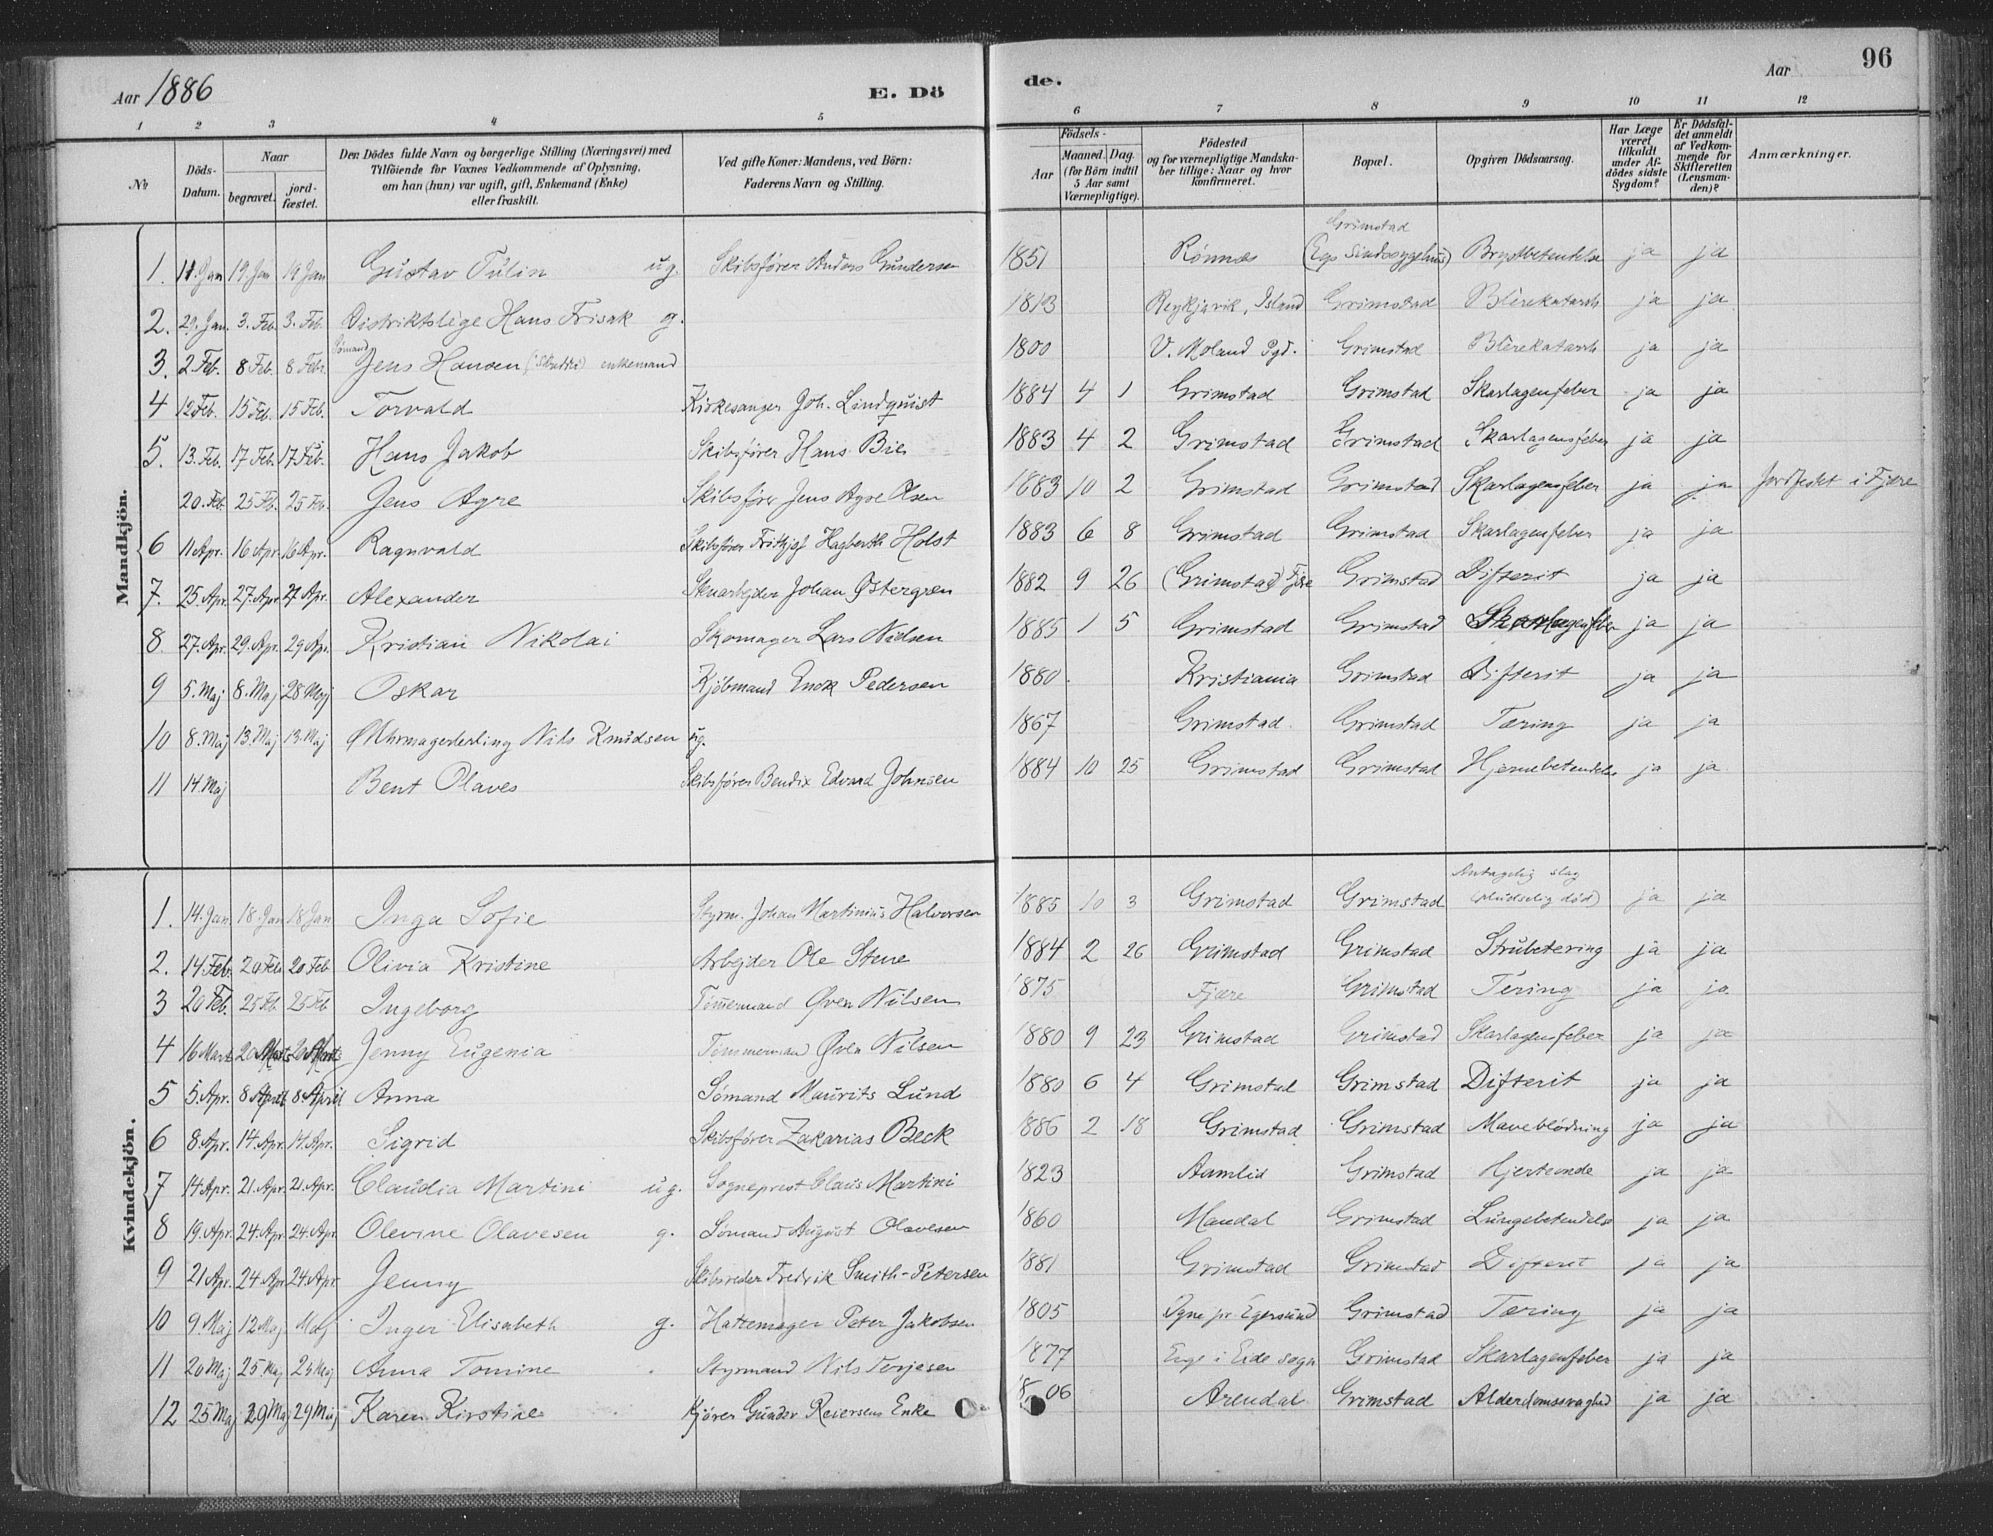 Aar 1886 E. Dö de. Aar 96
1 2 3 4 5 6 7 8 9 10 11 12
No
Döds-Datum.
Naar
begravet.
jord-fæstet.
Den Dödes fulde Navn og borgerlige Stilling (Næringsvei) med
Tilföiende for Voxnes Vedkommende af Oplysning,
om han (hun) var ugift, gift, Enkemand (Enke)
eller fraskilt.
Ved gifte Koner: Mandens, ved Börn:
Faderens Navn og Stilling.
Födsels-
Aar
Maaned. Dag.
(for Börn indtil
5 Aar samt
Værnepligtige).
Födested
og for værnepligtige Mandska-
ber tillige: Naar og hvor
konfirmeret.
Bopæl.
Opgiven Dödsaarsag.
Har Læge
været
tilkaldt
under Af-
dödes sidste
Sygdom?
Er Dödsfal-
det anmeldt
af Vedkom-
mende for
Skifteretten
(Lensman-
den)?
Anmærkninger.
Mandkjön.
Grimstad
1. 11. Jan 19 Jan 19 Jan Gustav Tulin ug. Skibsfører Anders Gundersen 1851 Rønnes (Egs Sindssygehus) Brystbetendelse ja ja
2. 29. Jan. 3. Feb. 3. Feb. Distriktslege Hans Frisak g. 1813 Reykjavik, Island Grimstad Blerekatarrh ja ja
Sømand
3. 2 Feb. 8 Feb. 8 Feb. Jens Hansen enkemand 1800 V. Moland Pgd. Grimstad Blerekatarrh ja ja
4 12 Feb. 15 Feb. 15 Feb. Torvald Kirkesanger Joh. Lindquist 1884 4 1 Grimstad Grimstad Skarlagenfeber ja ja
5. 13. Feb. 17 Feb. 17 Feb. Hans Jakob Skibsfører Hans Bie 1883 4 2 Grimstad Grimstad Skarlagensfeber ja ja
20. Feb 25 Fb. 25 Feb. Jens Agre Skibsfører Jens Agre Olsen 1883 10 2 Grimstad Grimstad Skarlagensfeber ja ja Jordfestet i Fjære
6 11 Apr. 16 Apr. 16 Apr. Ragnvald Skibsfører Frithjof Hagberth Holst 1883 6 8 Grimstad Grimstad Skarlagenfeber ja ja
7. 25. Apr. 27. Apr 27 Apr. Alexander Johan Østergren 1882 9 26 (Grimstad) Fjære Grimstad Difterit ja ja
8 27. Apr. 29. Apr. 29 Apr. Kristian Nikolai Skomager Lars Nielsen 1885 1 5 Grimstad Grimstad Skarlagenfeber ja ja
9 5. Maj 8. Maj 28 Maj Oskar Kjøbmand Enok Pedersen 1880 Kristiania Grimstad Difterit ja ja
10 8. Maj 13. Maj 13. Maj Nils Knudsen ug. 1867 Grimstad Grimstad Tæring ja ja
11 14. Maj Bent Olaves Skibsfører Bendix Edvard Johnsen 1884 10 25 Grimstad Grimstad Hjernebetendelse ja ja
Kvindekjön.
Antagelig slag
1. 14. Jan. 18. Jan 18 Jan Inga Sofie Styrm. Johan Martinius Halvorsen 1885 10 3 Grimstad Grimstad (pludselig død) ja ja
2. 14 Feb. 20 Feb 20 Feb Olivia Kristine Arbejder Ole Stene 1884 2 26 Grimstad Grimstad Strubetering ja ja
3 20 Feb. 25 Feb 25 Feb Ingeborg Tømermand Øven Nilsen 1875 Fjære Grimstad Tering ja ja
4 16 Mart 20 Marts 20 Marts Jenny Eugenia Tømmermand Øven Nilsen 1880 9 23 Grimstad Grimstad Skarlagensfeber ja ja
5 5. Apr. 8 April 8 April Anna Sømand Maurits Lund 1880 6 4 Grimstad Grimstad Difterit ja ja
6 8. Apr. 14. Apr. 14. Apr. Sigrid Skibsfører Zakarias Beck 1886 2 18 Grimstad Grimstad Maveblødning ja ja
7 14 Apr. 21. Apr. 21. Apr. Claudia Martini ug. Sogneprest Claus Martini 1823 Aamlid Grimstad Hjerteonde ja ja
8 19. Apr. 24. Apr. 24. Apr. Olevine Olavesen g. Sømand August Olavesen 1860 Mandal Grimstad Lungebetendelse ja ja
9 21 Apr. 24 Apr 24. Apr. Jenny Skibsreder Fredrik Smith-Petersen 1881 Grimstad Grimstad Difterit ja ja
10 9. Maj 12 Maj Maj Inger Elisabeth g. Hattemager Peter Jakobsen 1805 Ogne pr. Egersund Grimstad Tæring ja ja
11 20 Maj 25 Maj 25 Maj Anna Tomine Styrmand Nils Terjesen 1877 i Eide sogn Grimstad Skarlagenfeber ja ja
12 25 Maj 29 Maj 29 Maj Karen Kirstine Gunder Reiersens Enke 1806 Arendal Grimstad Alderdomssvaghed ja ja